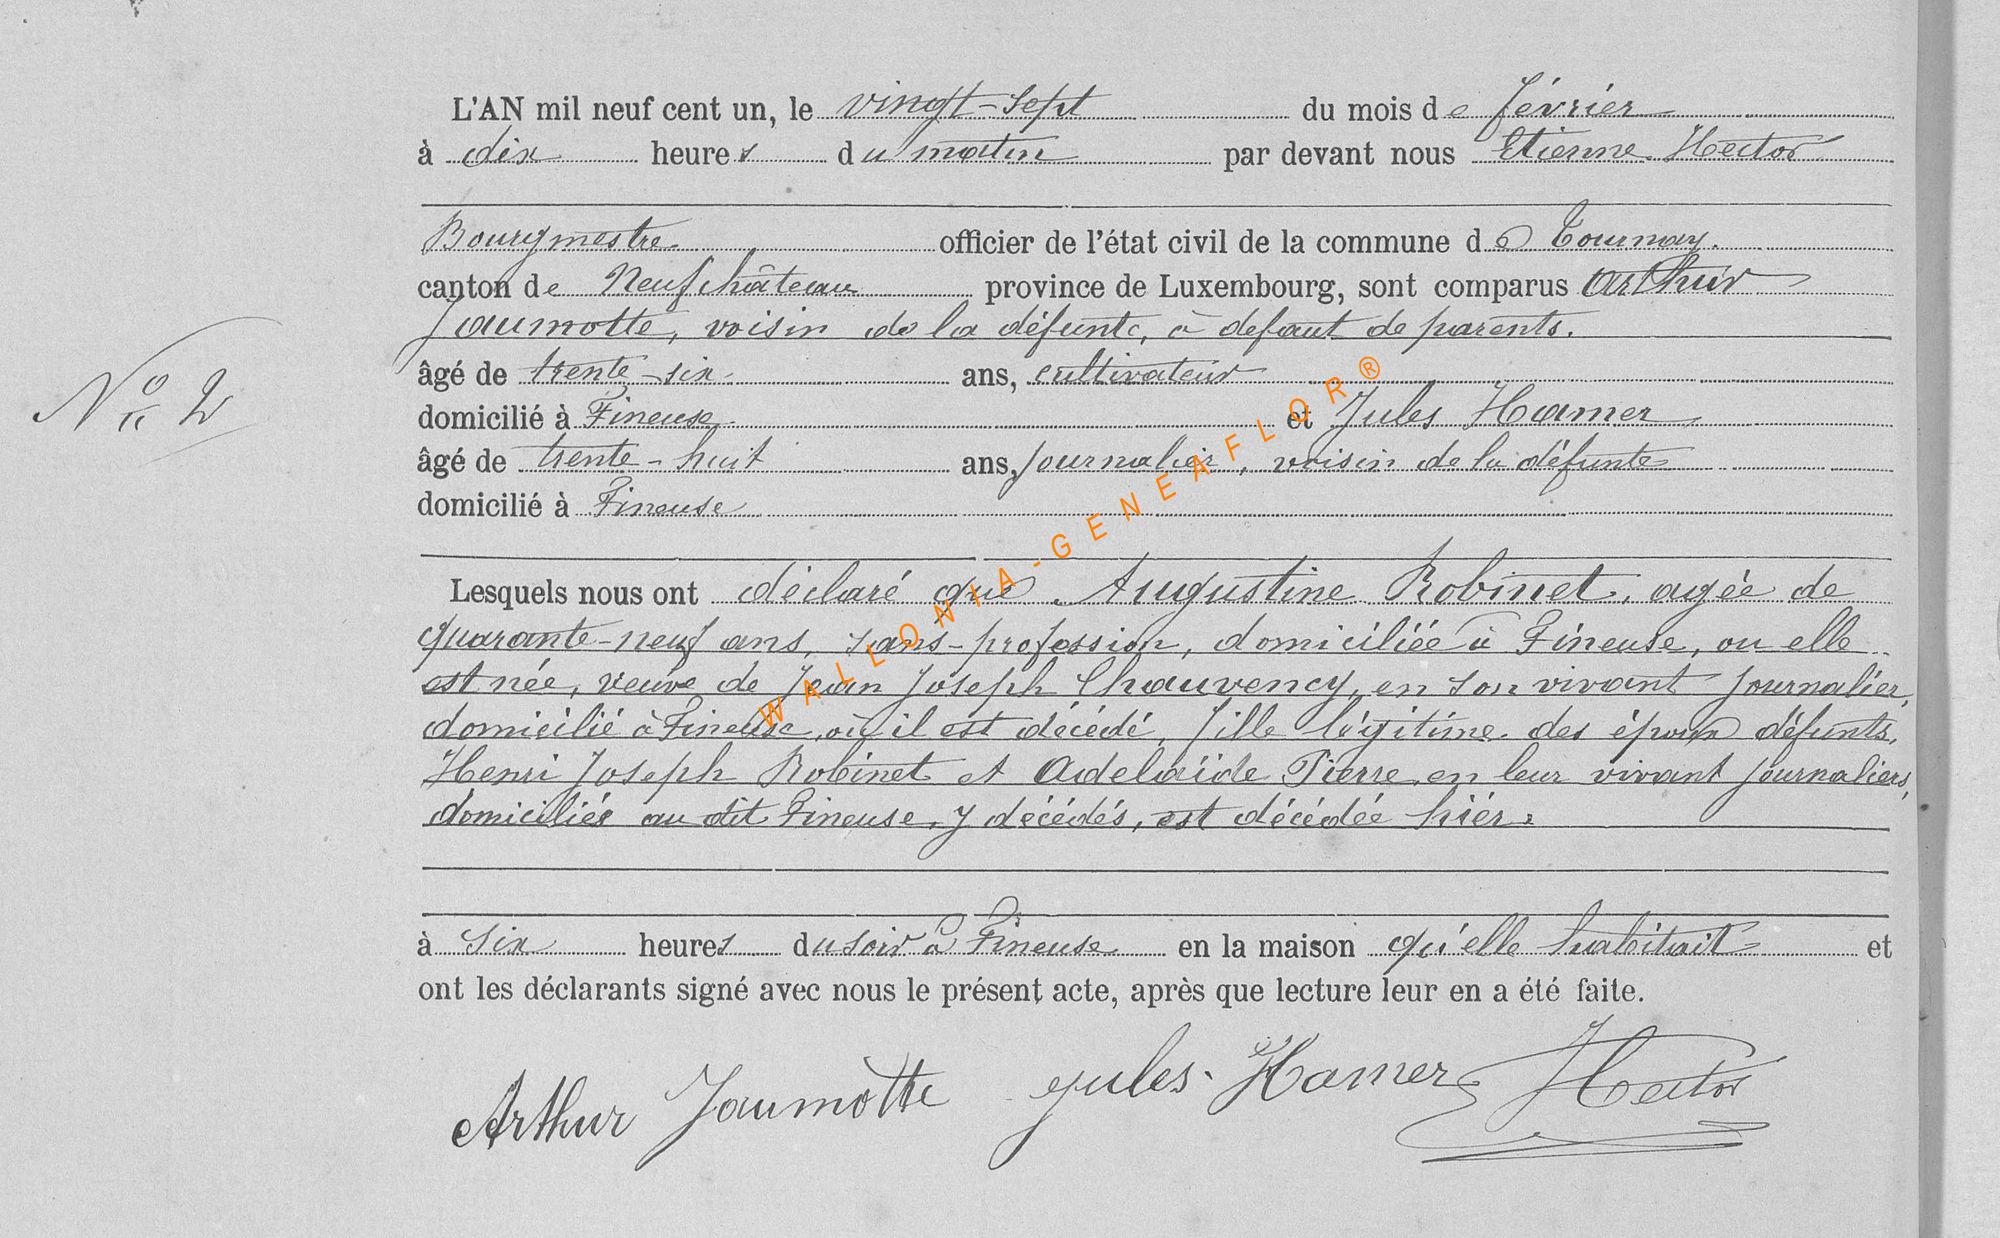 L'AN mil neuf cent un, le vingt-sept du mois de février
à dix heures du matin par devant nous Etienne Hector
Bourgmestre officier de l'état civil de la commune de Tournay.
canton de Neufchâteau province de Luxembourg, sont comparus Arthur
Jaumotte, voisin de la défunte, à defaut de parents.
âgé de trente-six ans, cultivateur
domicilié à Fineuse et Jules Hamer
N° 2
âgé de trente-huit ans, journalier, voisin de la défunte
domicilié à Fineuse
Lesquels nous ont déclaré que Augustine Robinet, agée de
quarante-neuf ans, sans-profession, domiciliée à Fineuse, ou elle
est née, veuve de Jean Joseph Chauvency, en son vivant journalier,
domicilié à Fineuse, où il est décédé, fille légitime des époux défunts,
Henri Joseph Robinet et Adelaïde Pierre, en leur vivant journaliers,
domiciliés au dit Fineuse, y décédés, est décédée hier.
à six heures du soir à Fineuse en la maison qu'elle habitait et
ont les déclarants signé avec nous le présent acte, après que lecture leur en a été faite.
Arthur Jaumotte Jules Hamer Hector
WALLONIA-GENEAFLOR®